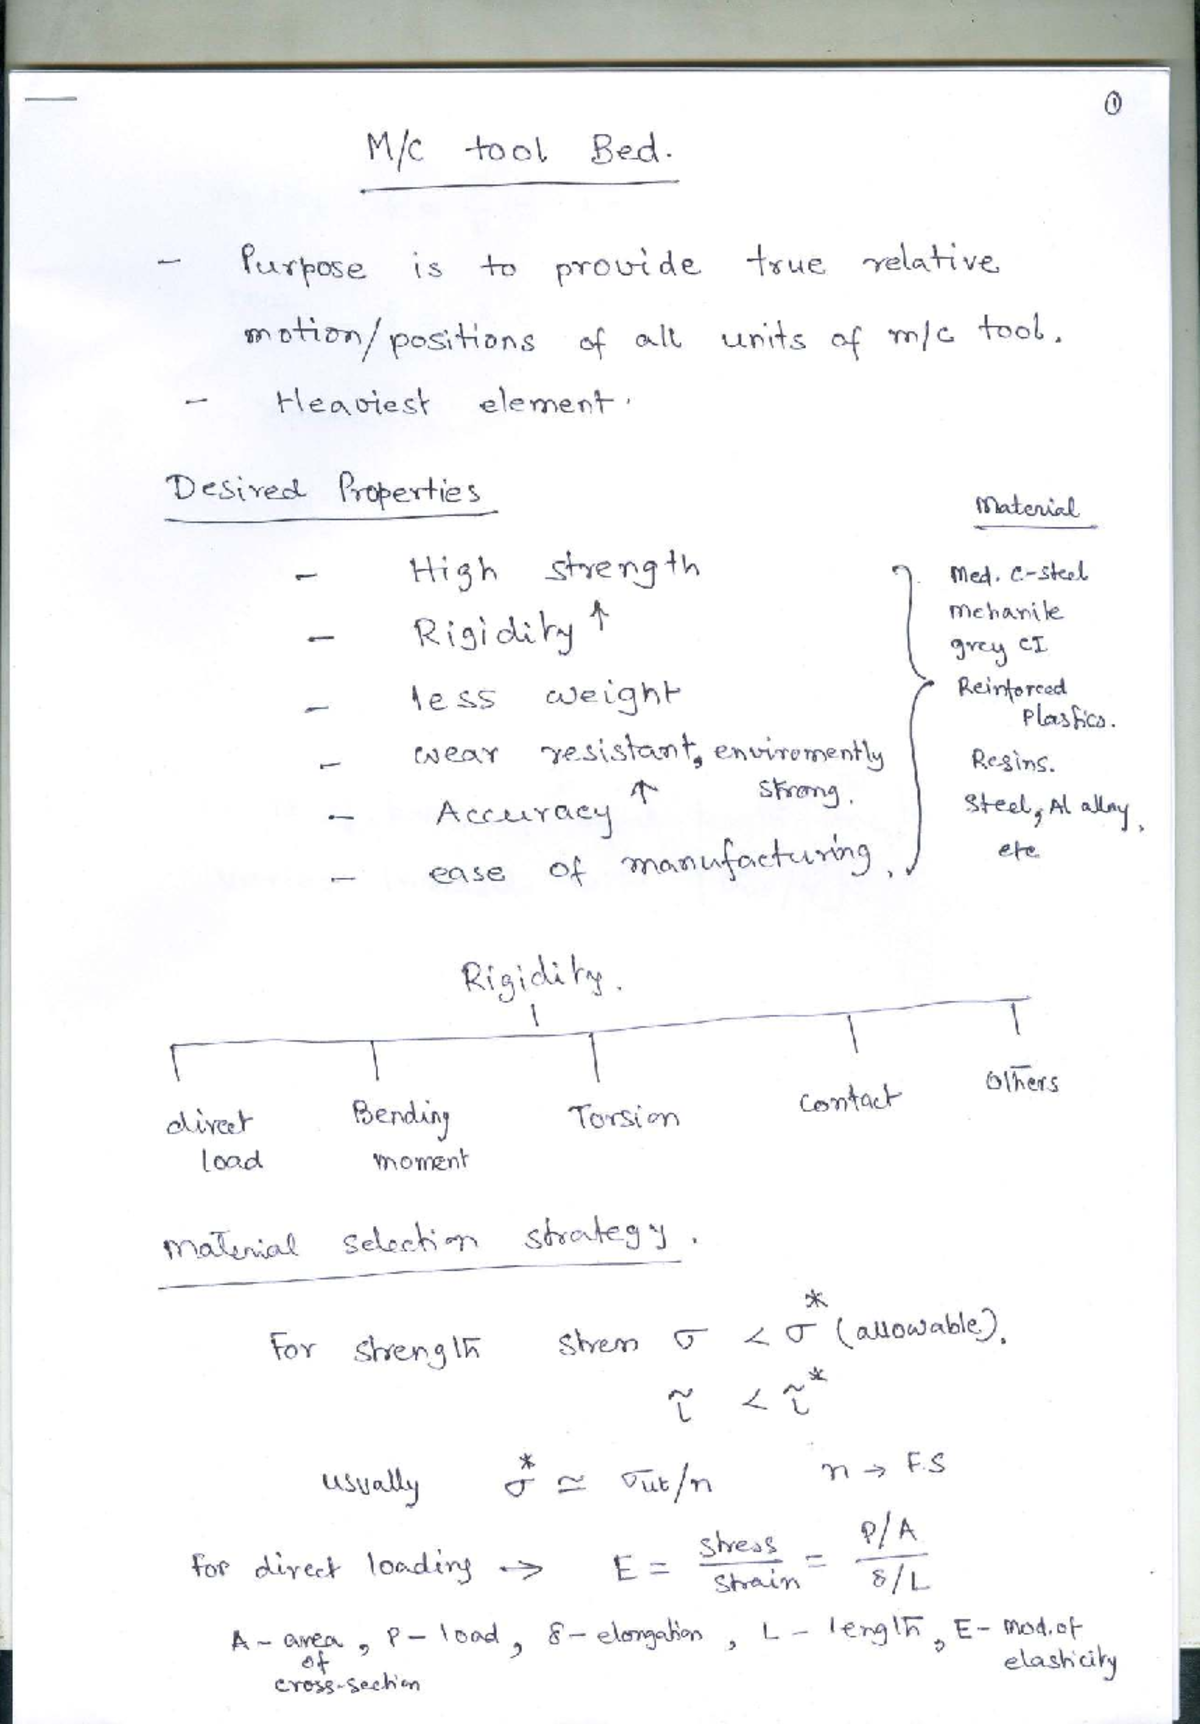 ①
M/C tool Bed.
- Purpose is to provide true relative
motion/positions of all units of m/c tool.
- Heaviest element.
Desired Properties
- High strength
- Rigidity ↑
- less weight
- wear resistant, enviromently
strong.
- Accuracy ↑
- ease of manufacturing.
Material
Med. C-steel
mehanite
grey CI
Reinforced
Plastics.
Resins.
Steel, Al alloy,
etc
Rigidity.
direct
load
Bending
moment
Torsion
contact
Others
Material selection strategy.
For strength stress σ < σ* (allowable).
τ < τ*
usually σ* ≃ σut/n n → F.S
for direct loading → E = stress/strain = (P/A)/(δ/L)
A - area
of
cross-section
, P - load, δ - elongation, L - length, E - mod. of
elasticity